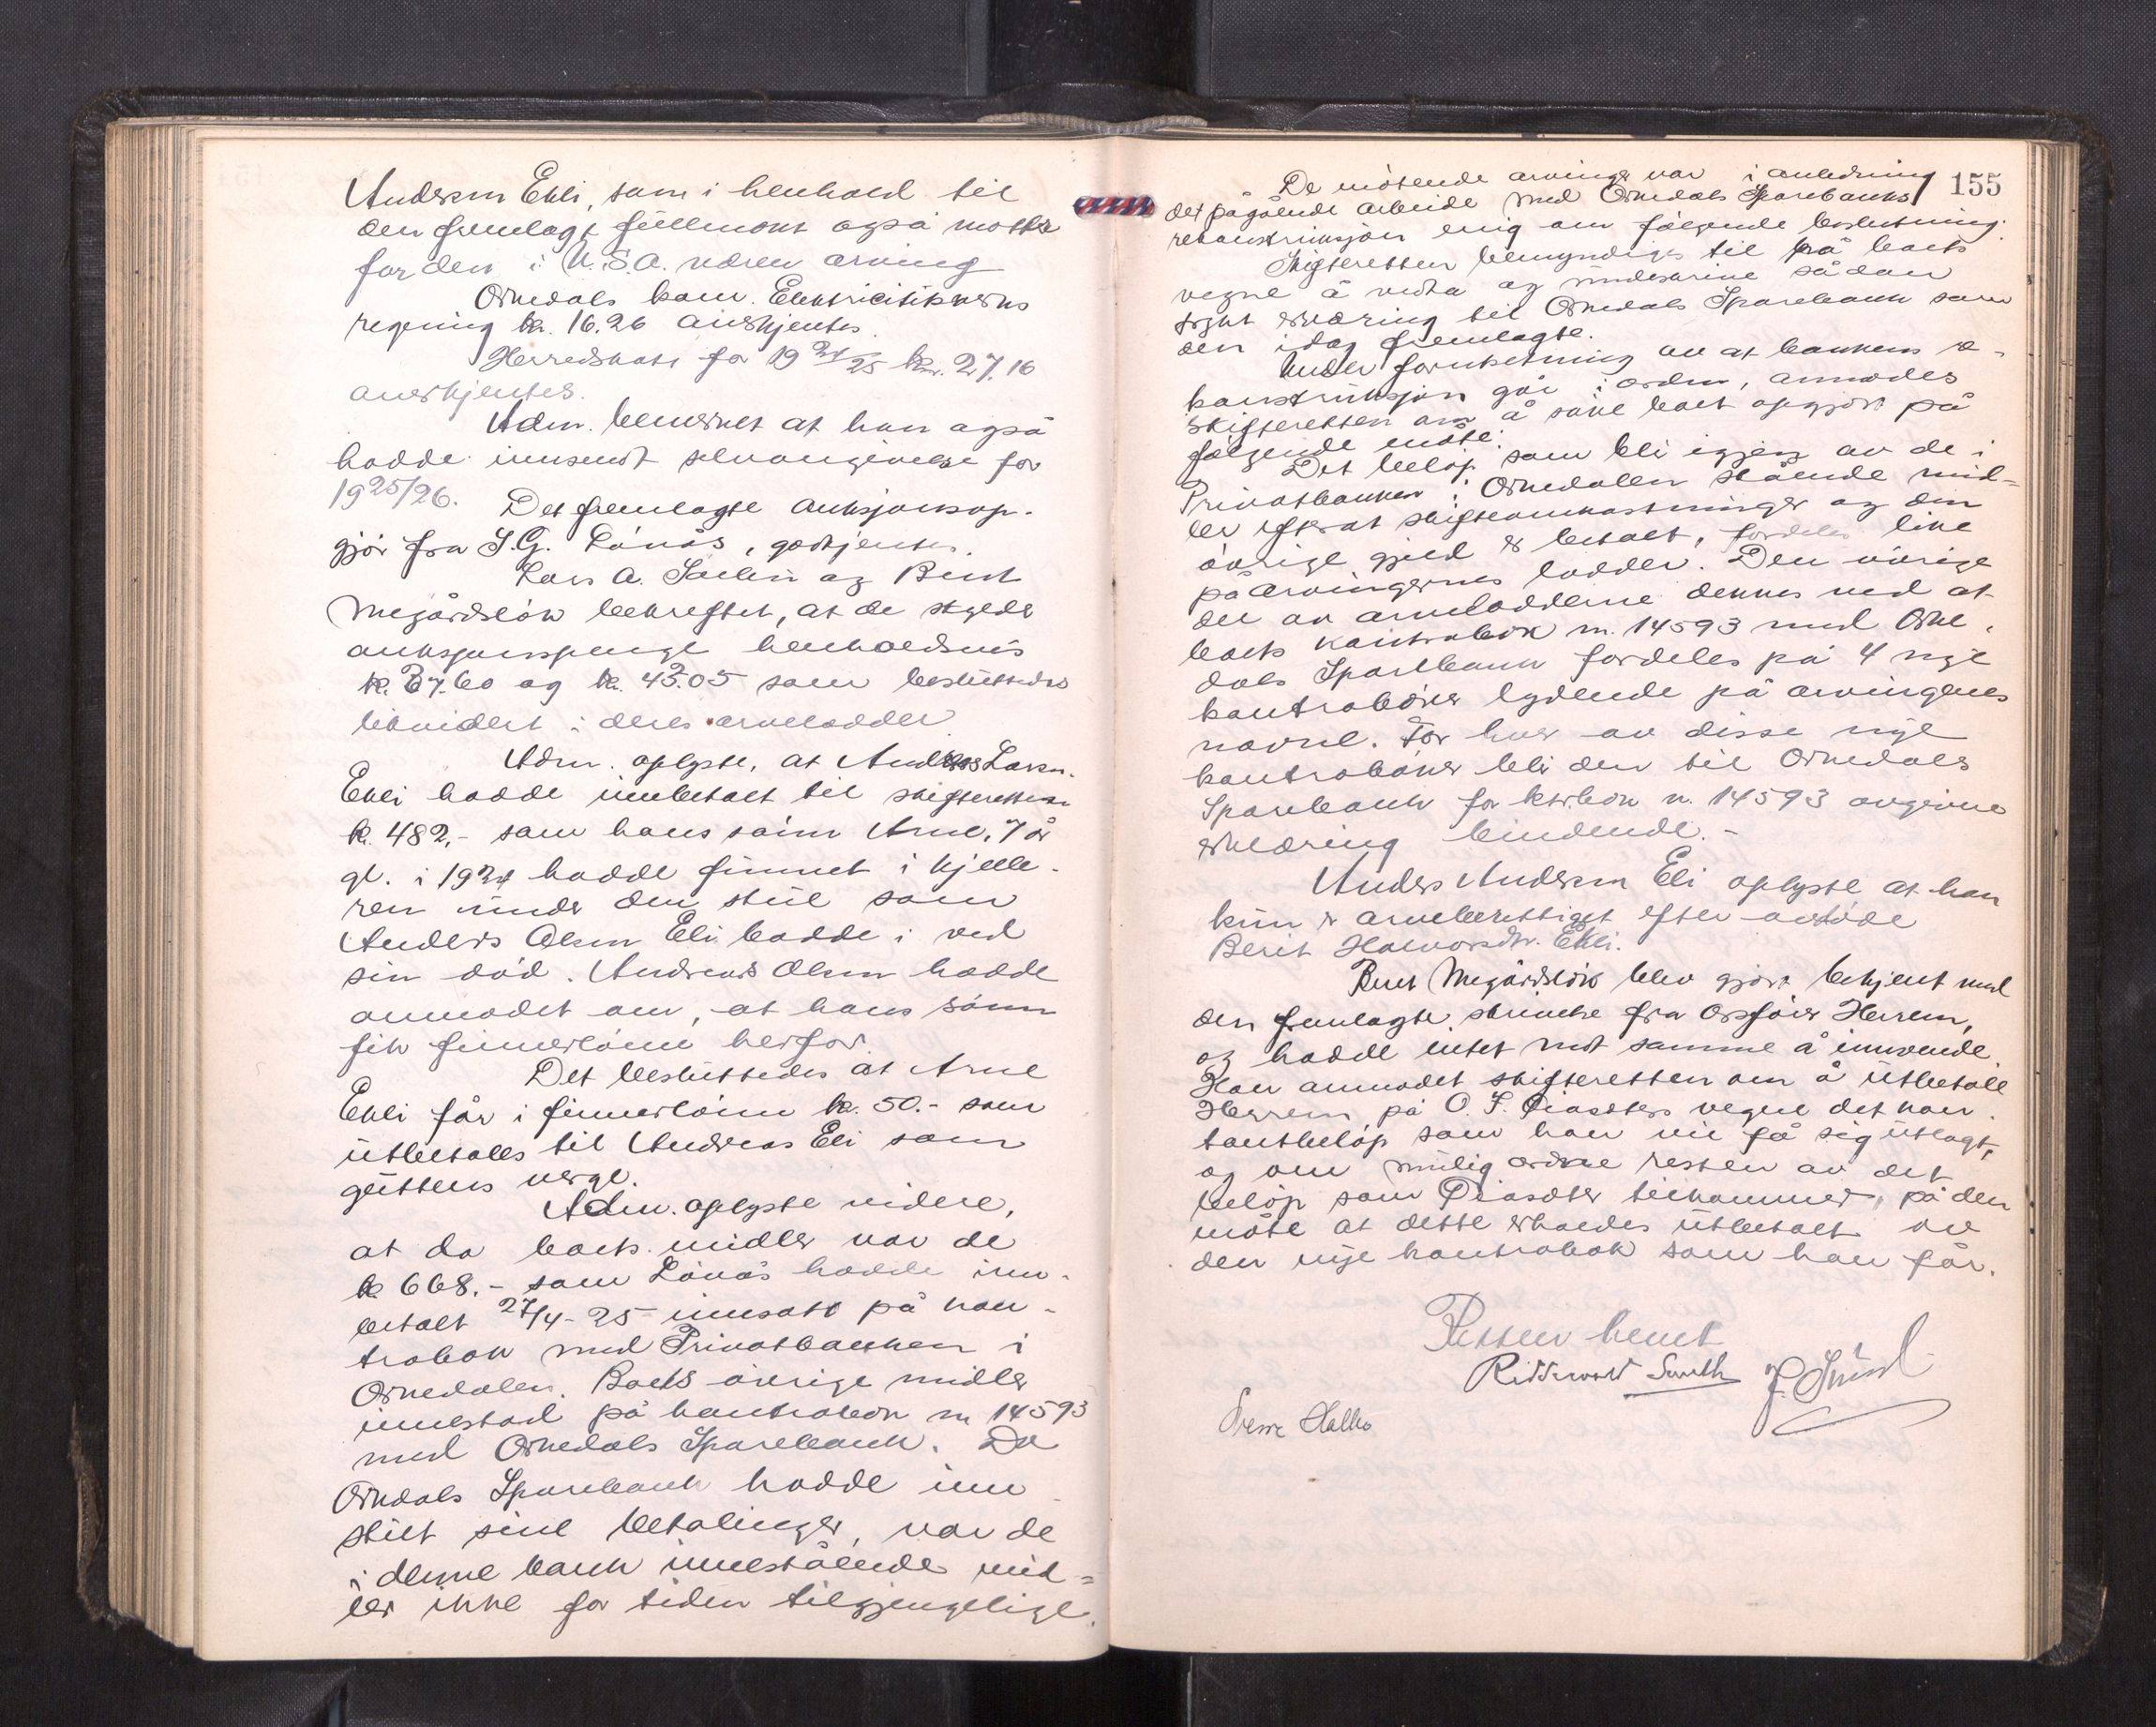 Andersen Ekli, som i henhold til
den fremlagt fullmakt også møtte
for den i U.S.A. væren arving
Orkedals kom. Elektricitikverks
regning kr. 16.26 anerkjentes.
Herredskatt for 19 24/25 kr. 27.16
anerkjentes.
Adm. bemerket at han også
hadde innsendt selvangivelse for
1925/26. Det fremlagte auksjonsop-
gjør fra S.G. Lønås, godkjentes.
Lars A. og Berit
Megårdsløk bekreftet, at de skylder
auksjonspenge henholdsvis
kr. 37.60 og kr. 43.05 som besluttedes
likvidert i deres arvelodder
Adm. oplyste, at Andreas Larsn.
Ekli hadde innbetalt til skifteretten
kr. 482,- som hans sønn Arne, 7 år
gl. i 1924 hadde funnet i kjelle-
ren under den stue som
Anders Olsen Eli bodde i ved
sin død. Andreas Olsen hadde
anmodet om, at hans sønn
fik finnerlønn herfor.
Det besluttedes at Arne
Ekli får i finnerlønn kr. 50.- som
utbetales til Andreas Eli som
guttens verge.
Adm. oplyste videre,
at da boets midler var de
kr 668.- som Lønås hadde inn-
betalt 27/4-25 innsatt på kon-
trabok med Privatbanken i
Orkedalen. Boets øvrige midler
innestod på kontrabok nr 14593
med Orkedals Sparebank. Da
Orkdals Sparebank hadde inn
stilt sine betalinger, var de
i denne bank innestående mid=
ler ikke for tiden tilgjengelige.
155
De møtende arvinger var i anledning
det pågående arbeide med Orkedals Sparebanks
rekonstruksjon enig om følgende beslutning:
Skifteretten bemyndiges til på boets
vegne å vedta og underskrive sådan
trykt erklæring til Orkedals Sparebank som
den idag fremlagte.
Under forutsetning av at bankens re-
konstruksjon går i orden, anmodes
skifteretten om å søke boet opgjort på
følgende måte:
Det beløp som bli igjen av de i
Privatbanken i Orkedalen stående mid=
ler efterat skifteomkostninger og den
øvrige gjeld er betalt, fordeles like
på arvingernes lodder. Den øvrige
del av arveloddene dekkes ved at
boets kontrabok nr. 14593 med Orke-
dals Sparebank fordeles på 4 nye
kontrabøker lydende på arvingenes
navne. For hver av disse nye
kontrabøker bli den til Orkedals
Sparebank for ktrbok nr. 14593 avgivne
erklæring bindende.-
Anders Andersen Eli oplyste at han
kun er arveberettiget efter avdøde
Berit Halvorsdtr. Ekli.
Berit Megårdsløk blev gjort bekjent med
den fremlagte skrivelse fra Orsfører Herrem,
og hadde intet mot samme å innvende.
Han anmodet skifteretten om å utbetale
Herrem på O. J. vegne det kon-
tantbeløp som han vil få sig utlagt,
og om mulig ordne resten av det
beløp som tilkommer, på den
måte at dette erholdes utbetalt av
den nye kontrabok som han får.
Retten hevet
Ridderwold Smith J. Sund
Sverre Halbo